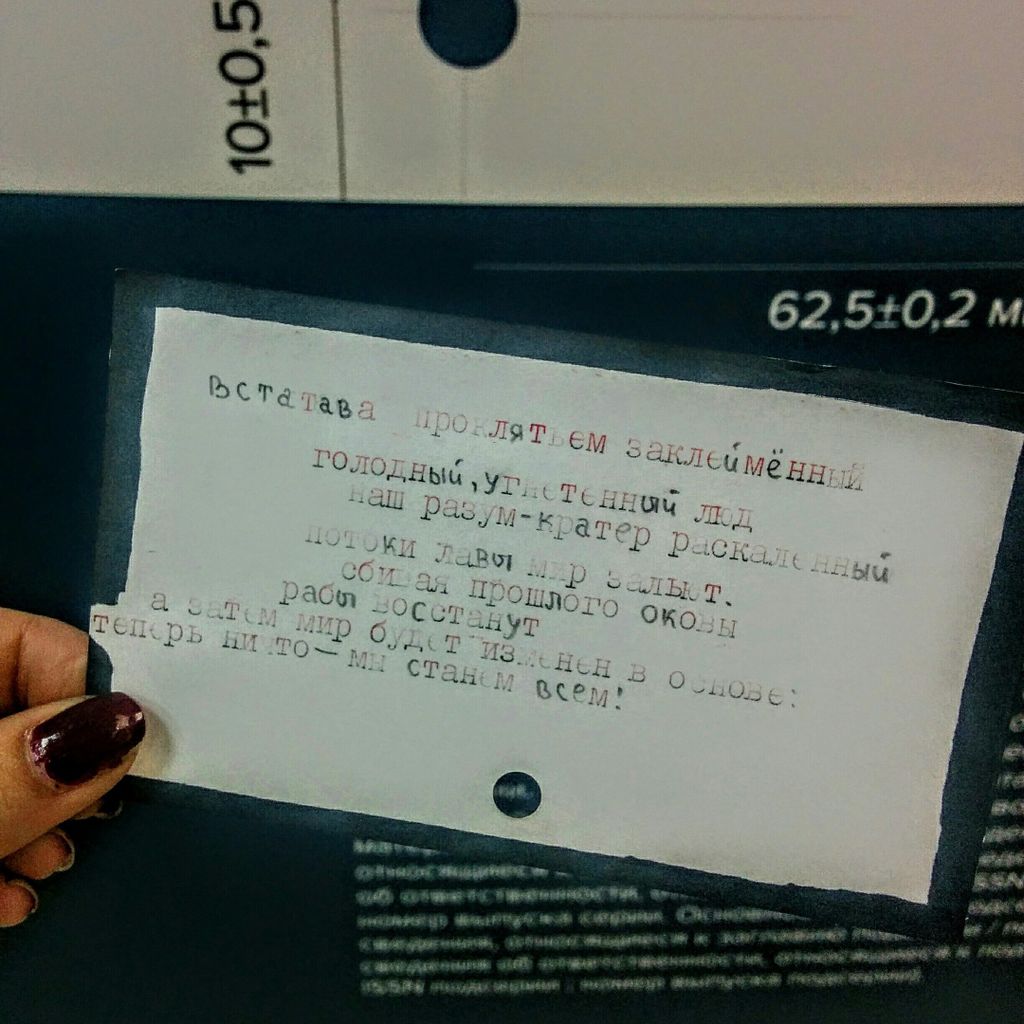 10±0,5
62,5±0,2 м
Встатава проклятьем заклеймённый
голодный, угнетенный люд
наш разум-кратер раскаленный
потоки лавы мир зальют.
сбивая прошлого оковы
рабы восстанут
а затем мир будет изменен в основе:
теперь ничто — мы станем всем!
относящиеся
об ответственности,
номер выпуска серии. Основное
сведения, относящиеся к заглавию
сведения об ответственности, относящиеся к
ISSN подсерии ; номер выпуска подсерии)